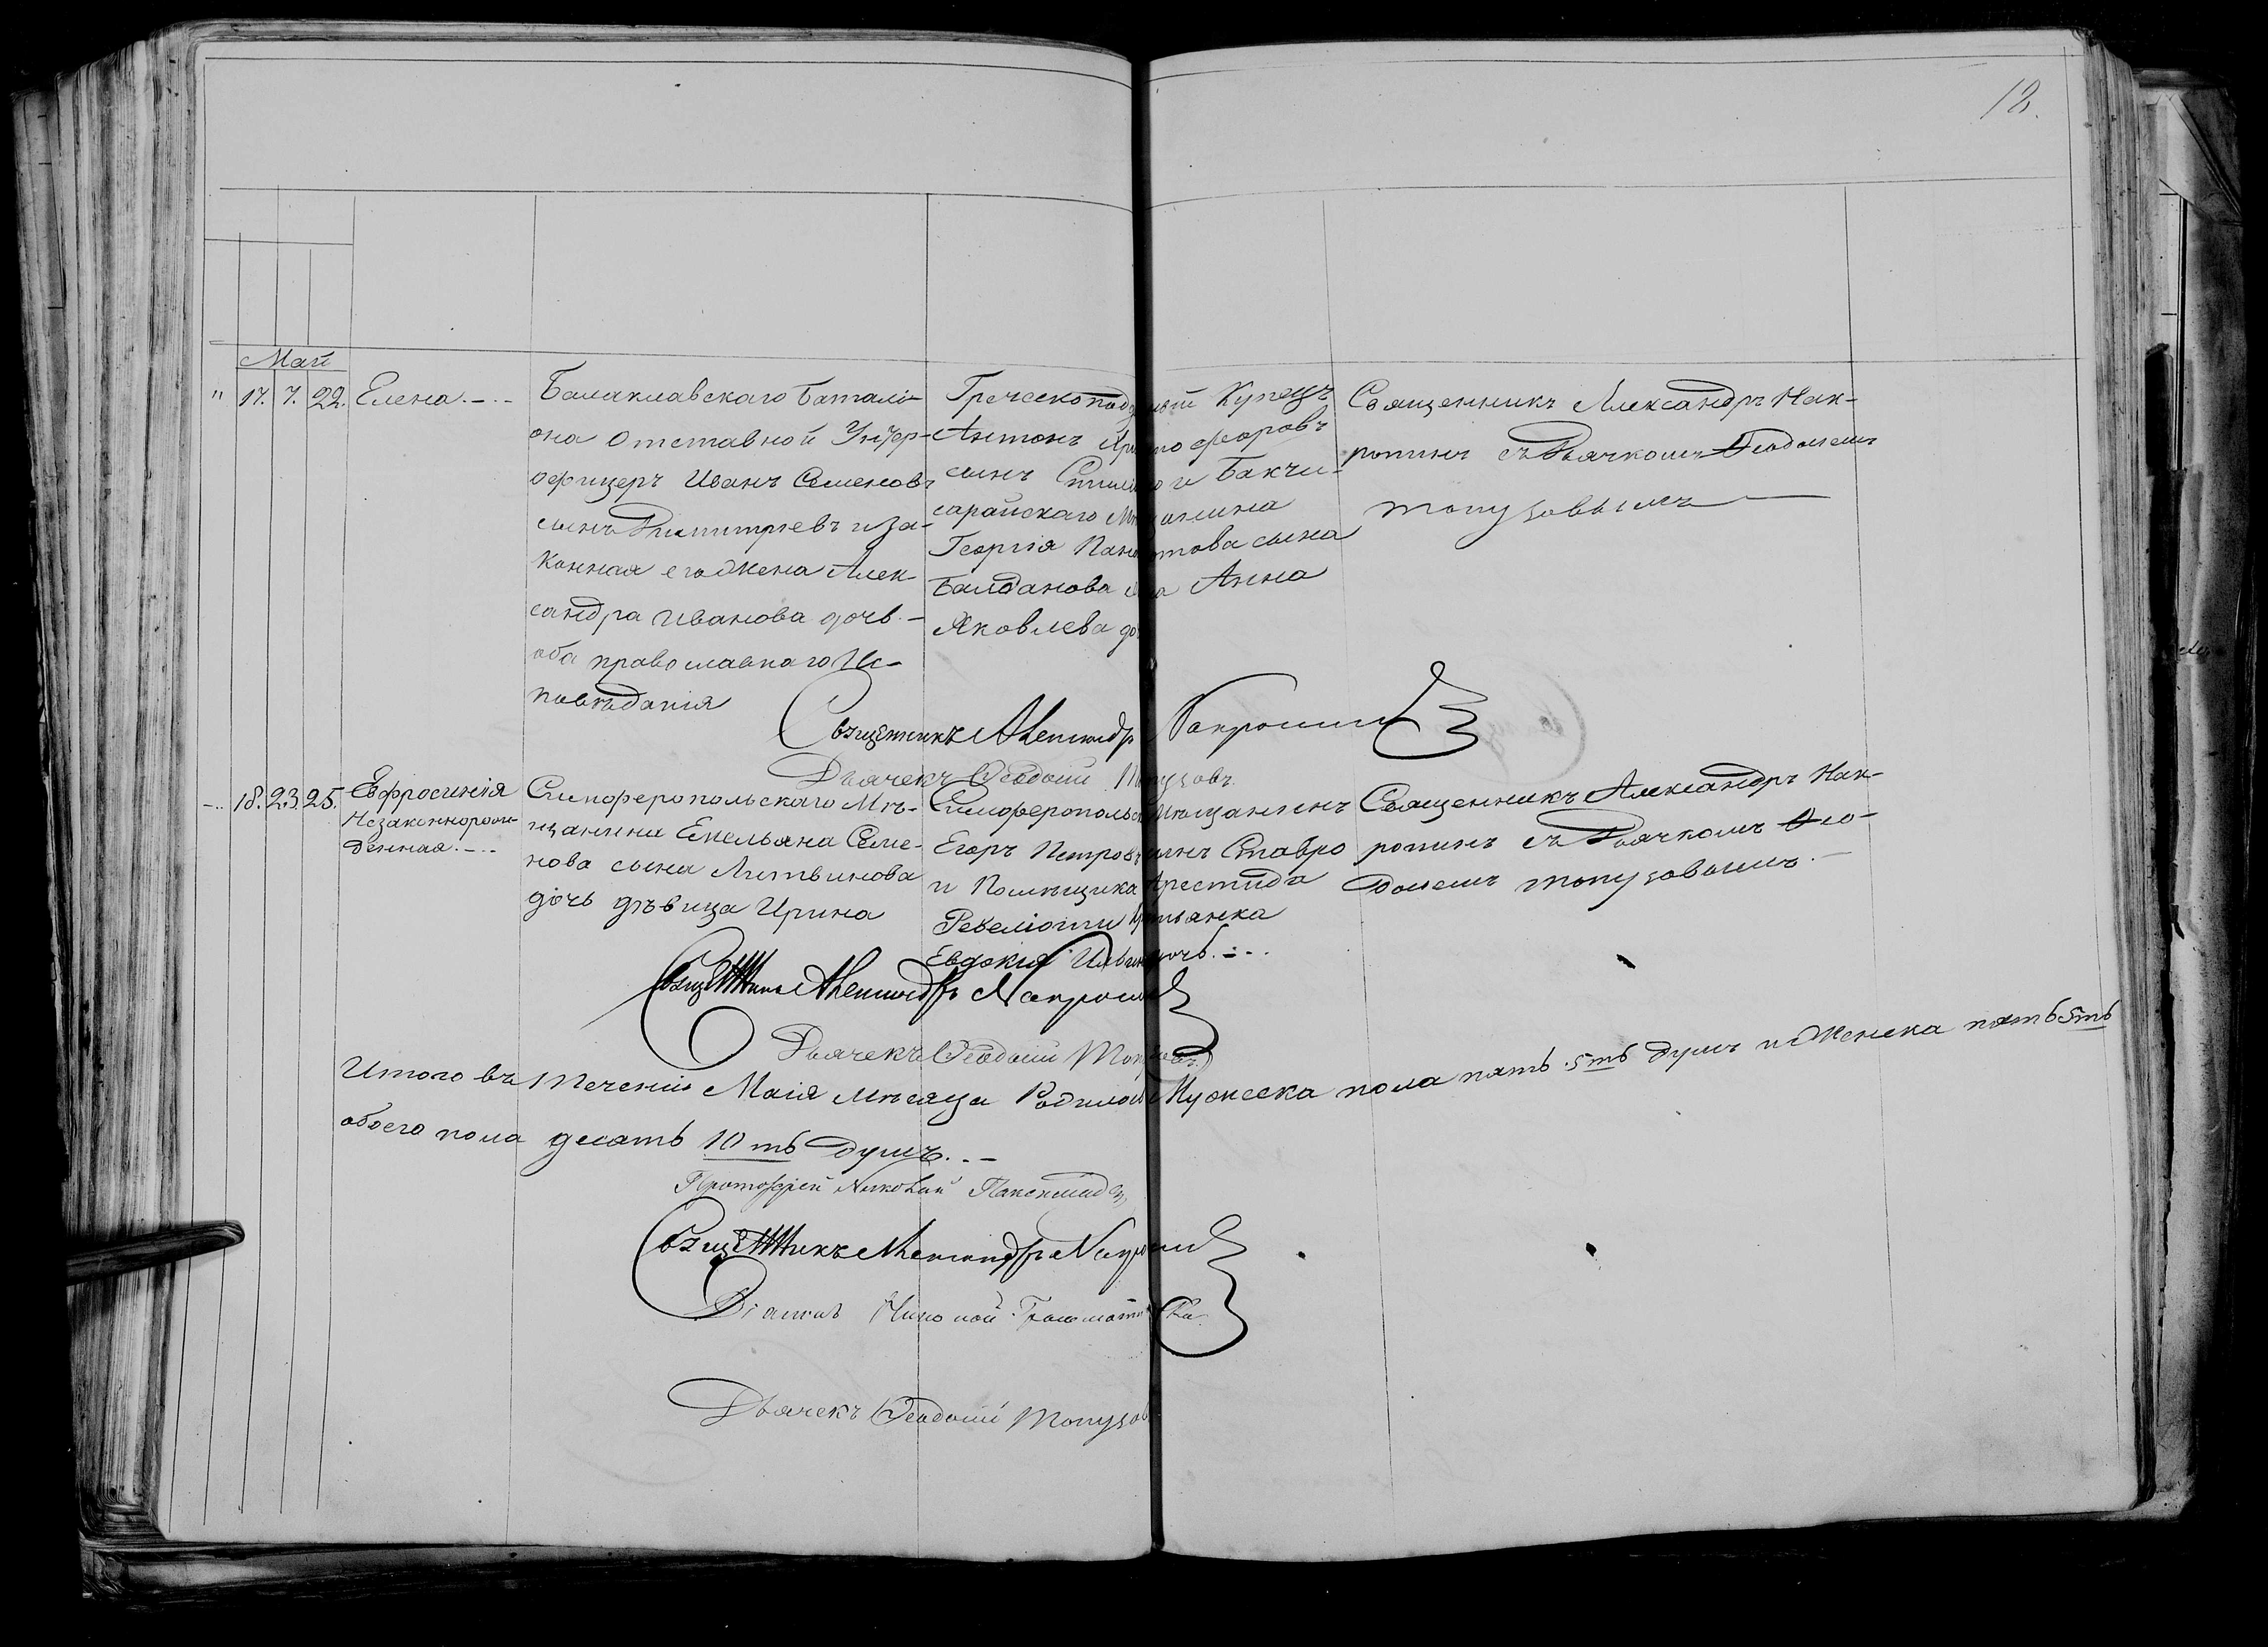 12.
Май
" 17. 7. 22. Елена.
Балаклавскаго Баталі-
она Отставной Унтер-
офицеръ Иванъ Семеновъ
сынъ Димитріевъ и за-
конная его Жена Алек-
сандра Иванова дочь. –
оба православнаго Ис-
повѣданія
Греческоподданый Купецъ
Антонъ Христофоровъ
сынъ и Бакчи-
сарайскаго Мѣщанина
Георгія сына
Анна
Яковлева
Священникъ Александръ Нак-
ропинъ съ Дьячкомъ Ѳеодосіемъ
Топузовымъ
Священникъ Александръ Накропинъ
Дьячекъ Ѳеодосій Топузовъ
18. 23. 25. Евфросинія
Незаконнорож-
денная.
Симферопольскаго Мѣ-
щанина Емельяна Семе-
нова сына Литвинова
дочь дѣвица Ирина
Мѣщанинъ
Егоръ Петровъ сынъ Ставро
и Помѣщика Аристида
Ревеліоти Крестьянка
Евдокія дочь.
Священникъ Александръ Нак-
ропинъ съ Дьячкомъ Ѳео-
досіемъ Топузовымъ.
Священникъ Александръ Накропинъ
Дьячекъ Ѳеодосій Топузовъ
Итого въ теченіи Маія мѣсяца Родилось Мужеска пола пять 5ть душъ и Женска пять 5ть
обоего пола десять 10ть душъ.
Протоіерей Николай
Священникъ Александръ Накропинъ
Николай
Дьячекъ Ѳеодосій Топузовъ